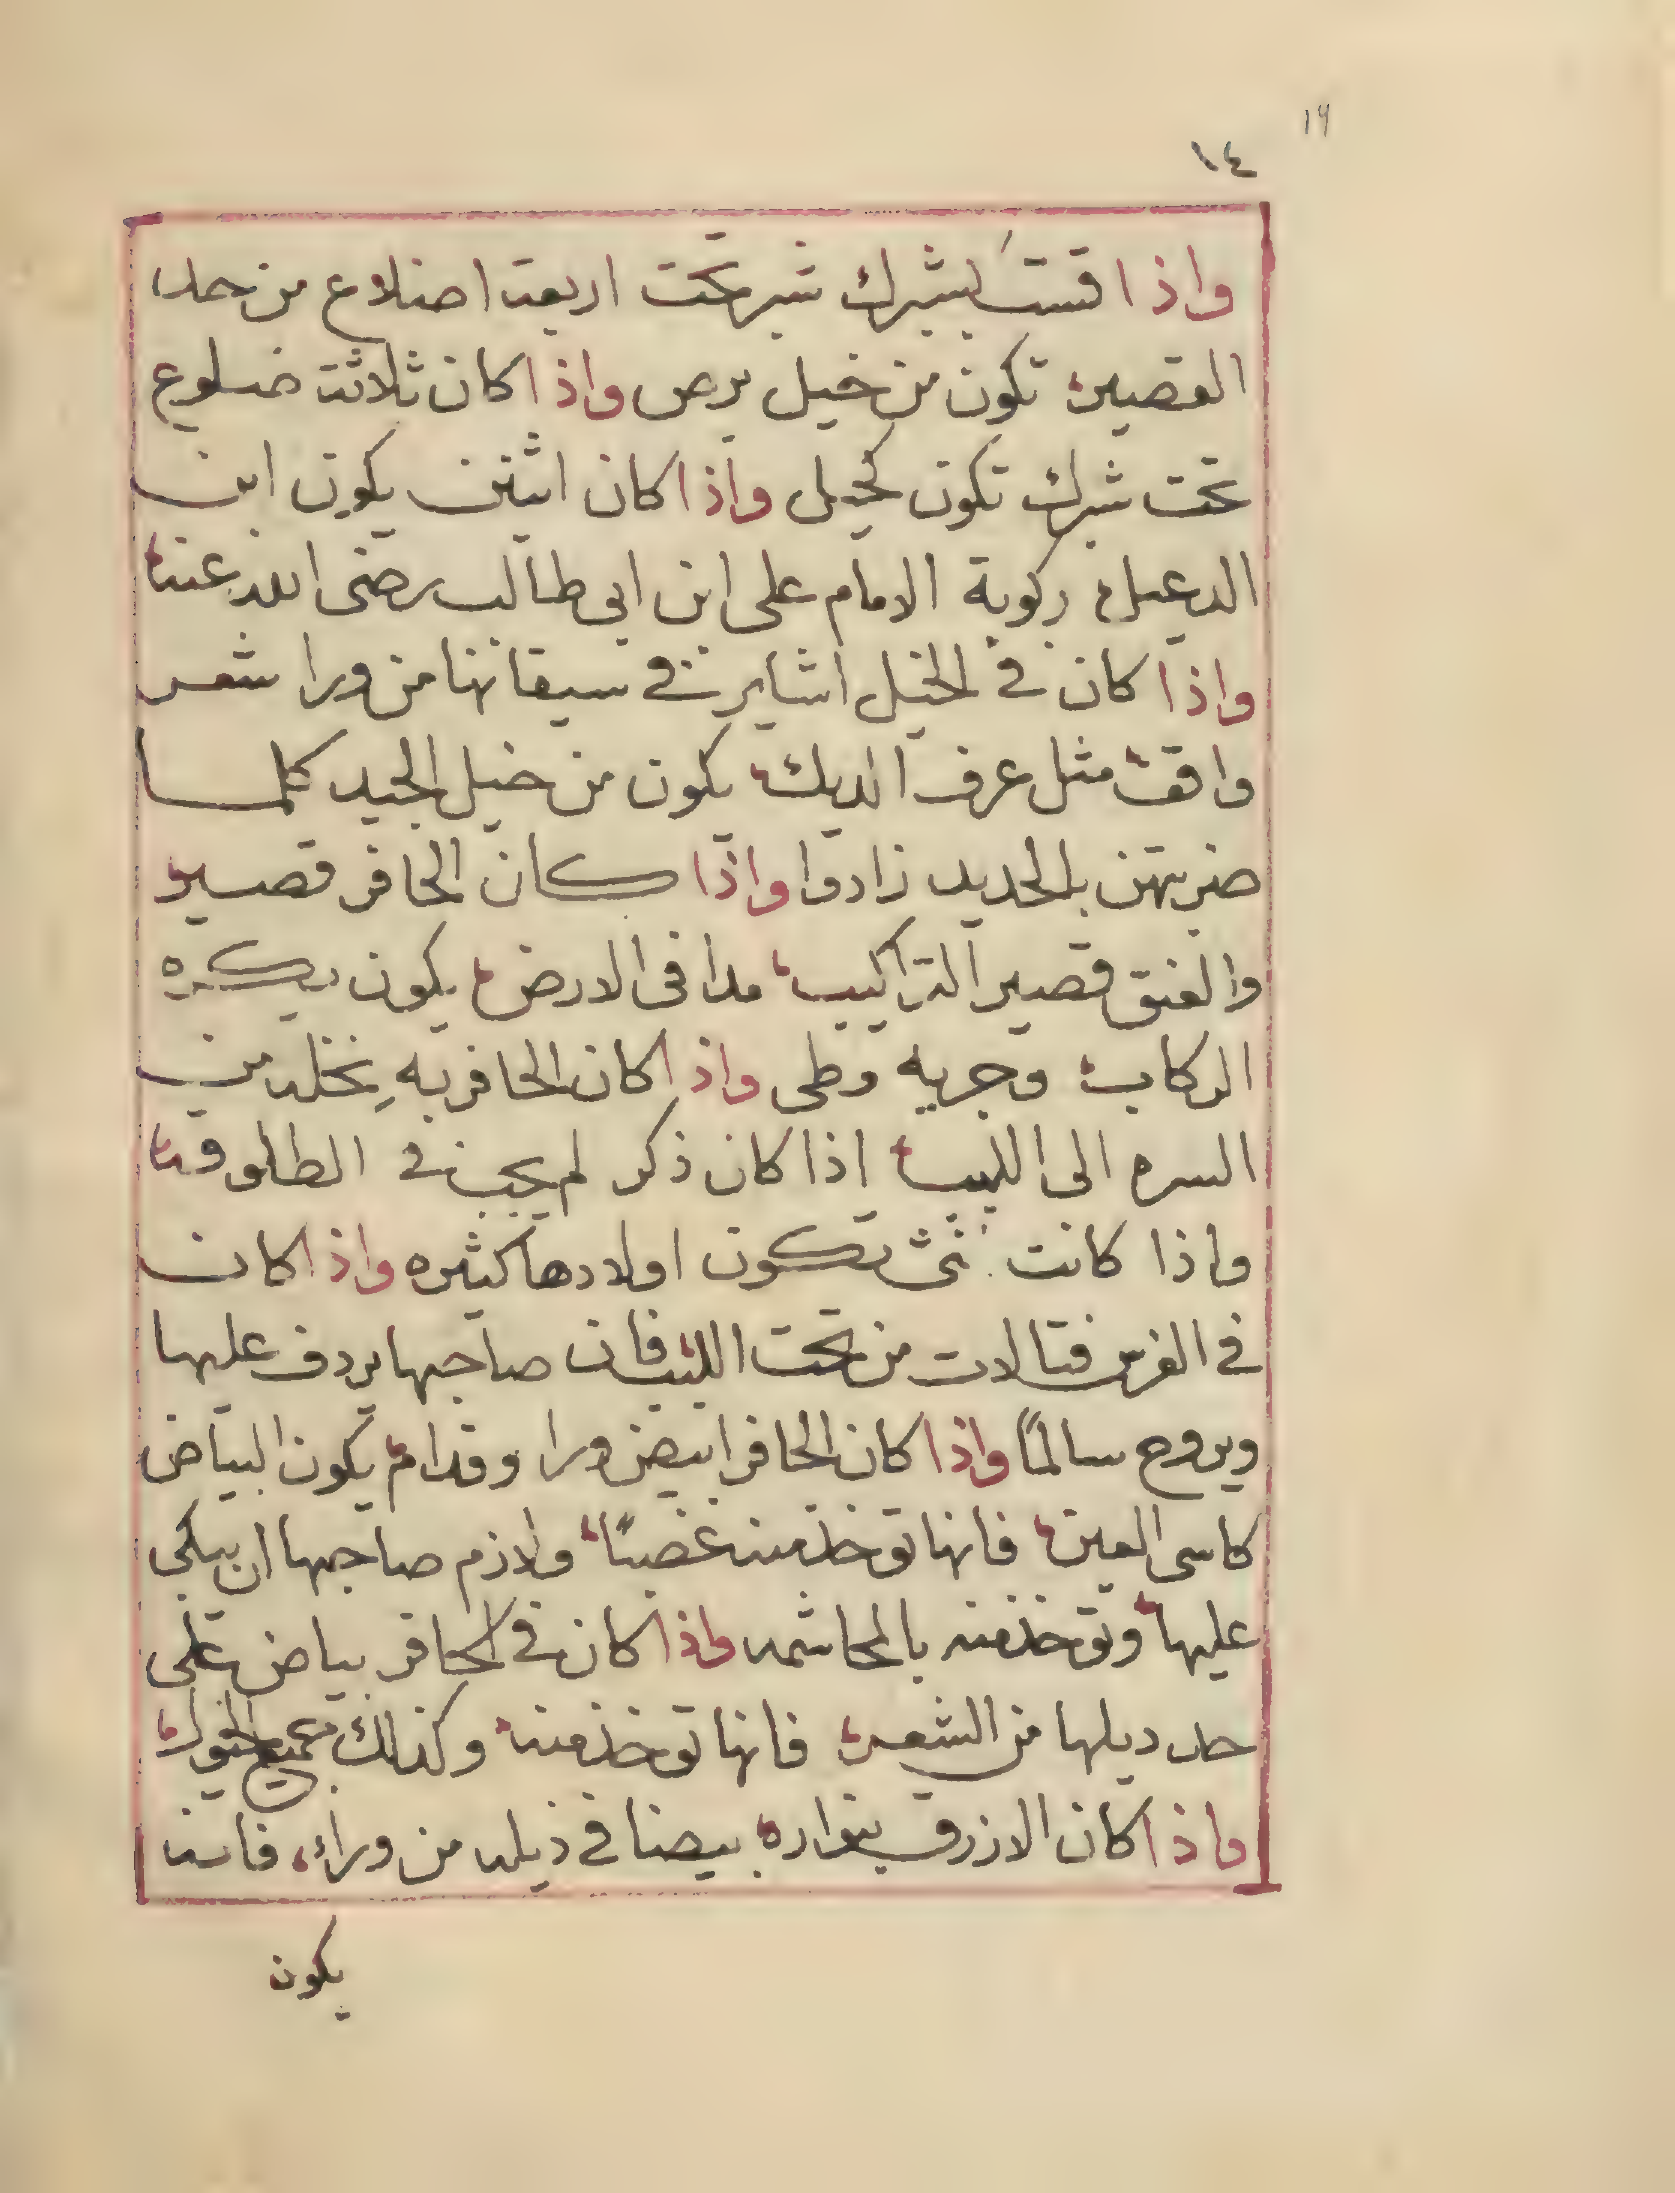 ١٦
١٤
واذا قست بشبرك شبر تحت اربعة اضلاع من حد
القصير تكون من خيل برص واذا كان ثلاثة ضلوع
تحت شبرك تكون كحيل واذا كان اثنين يكون ابن
الدعيل ركوبة الامام على ابن ابى طالب رضى الله عنه
واذا كان فى الخيل اشاير فى سيقانها من ورا شعر
واقف مثل عرف الديك يكون من خيل الجيد كلما
ضربتهن بالحديد زادوا واذا كان الحافر قصير
والعنق قصير التراكيب مدا فى الارض يكون يكره
الركاب وجريه وطى واذا كان الحافر به نخله من
السره الى اللبب اذا كان ذكر لم يجب فى الطلوقه
واذا كانت نثى تكون اولادها كثيره واذا كان
فى الفرس فتالات من تحت اللبب فان صاحبها يردف عليها
ويروح سالمًا واذا كان الحافر ابيض ورا وقدام يكون البياض
كاسى العين فانها توخذ منه غصبًا ولازم صاحبها ان يبكى
عليها وتوخذ منه بالمحاشمه واذا كان فى الحافر بياض على
حد ديلها من الشعر فانها توخذ منه وكذلك جميع الخيول
واذا كان الازرق بنواره بيضا فى ذيله من وراء فانه
يكون